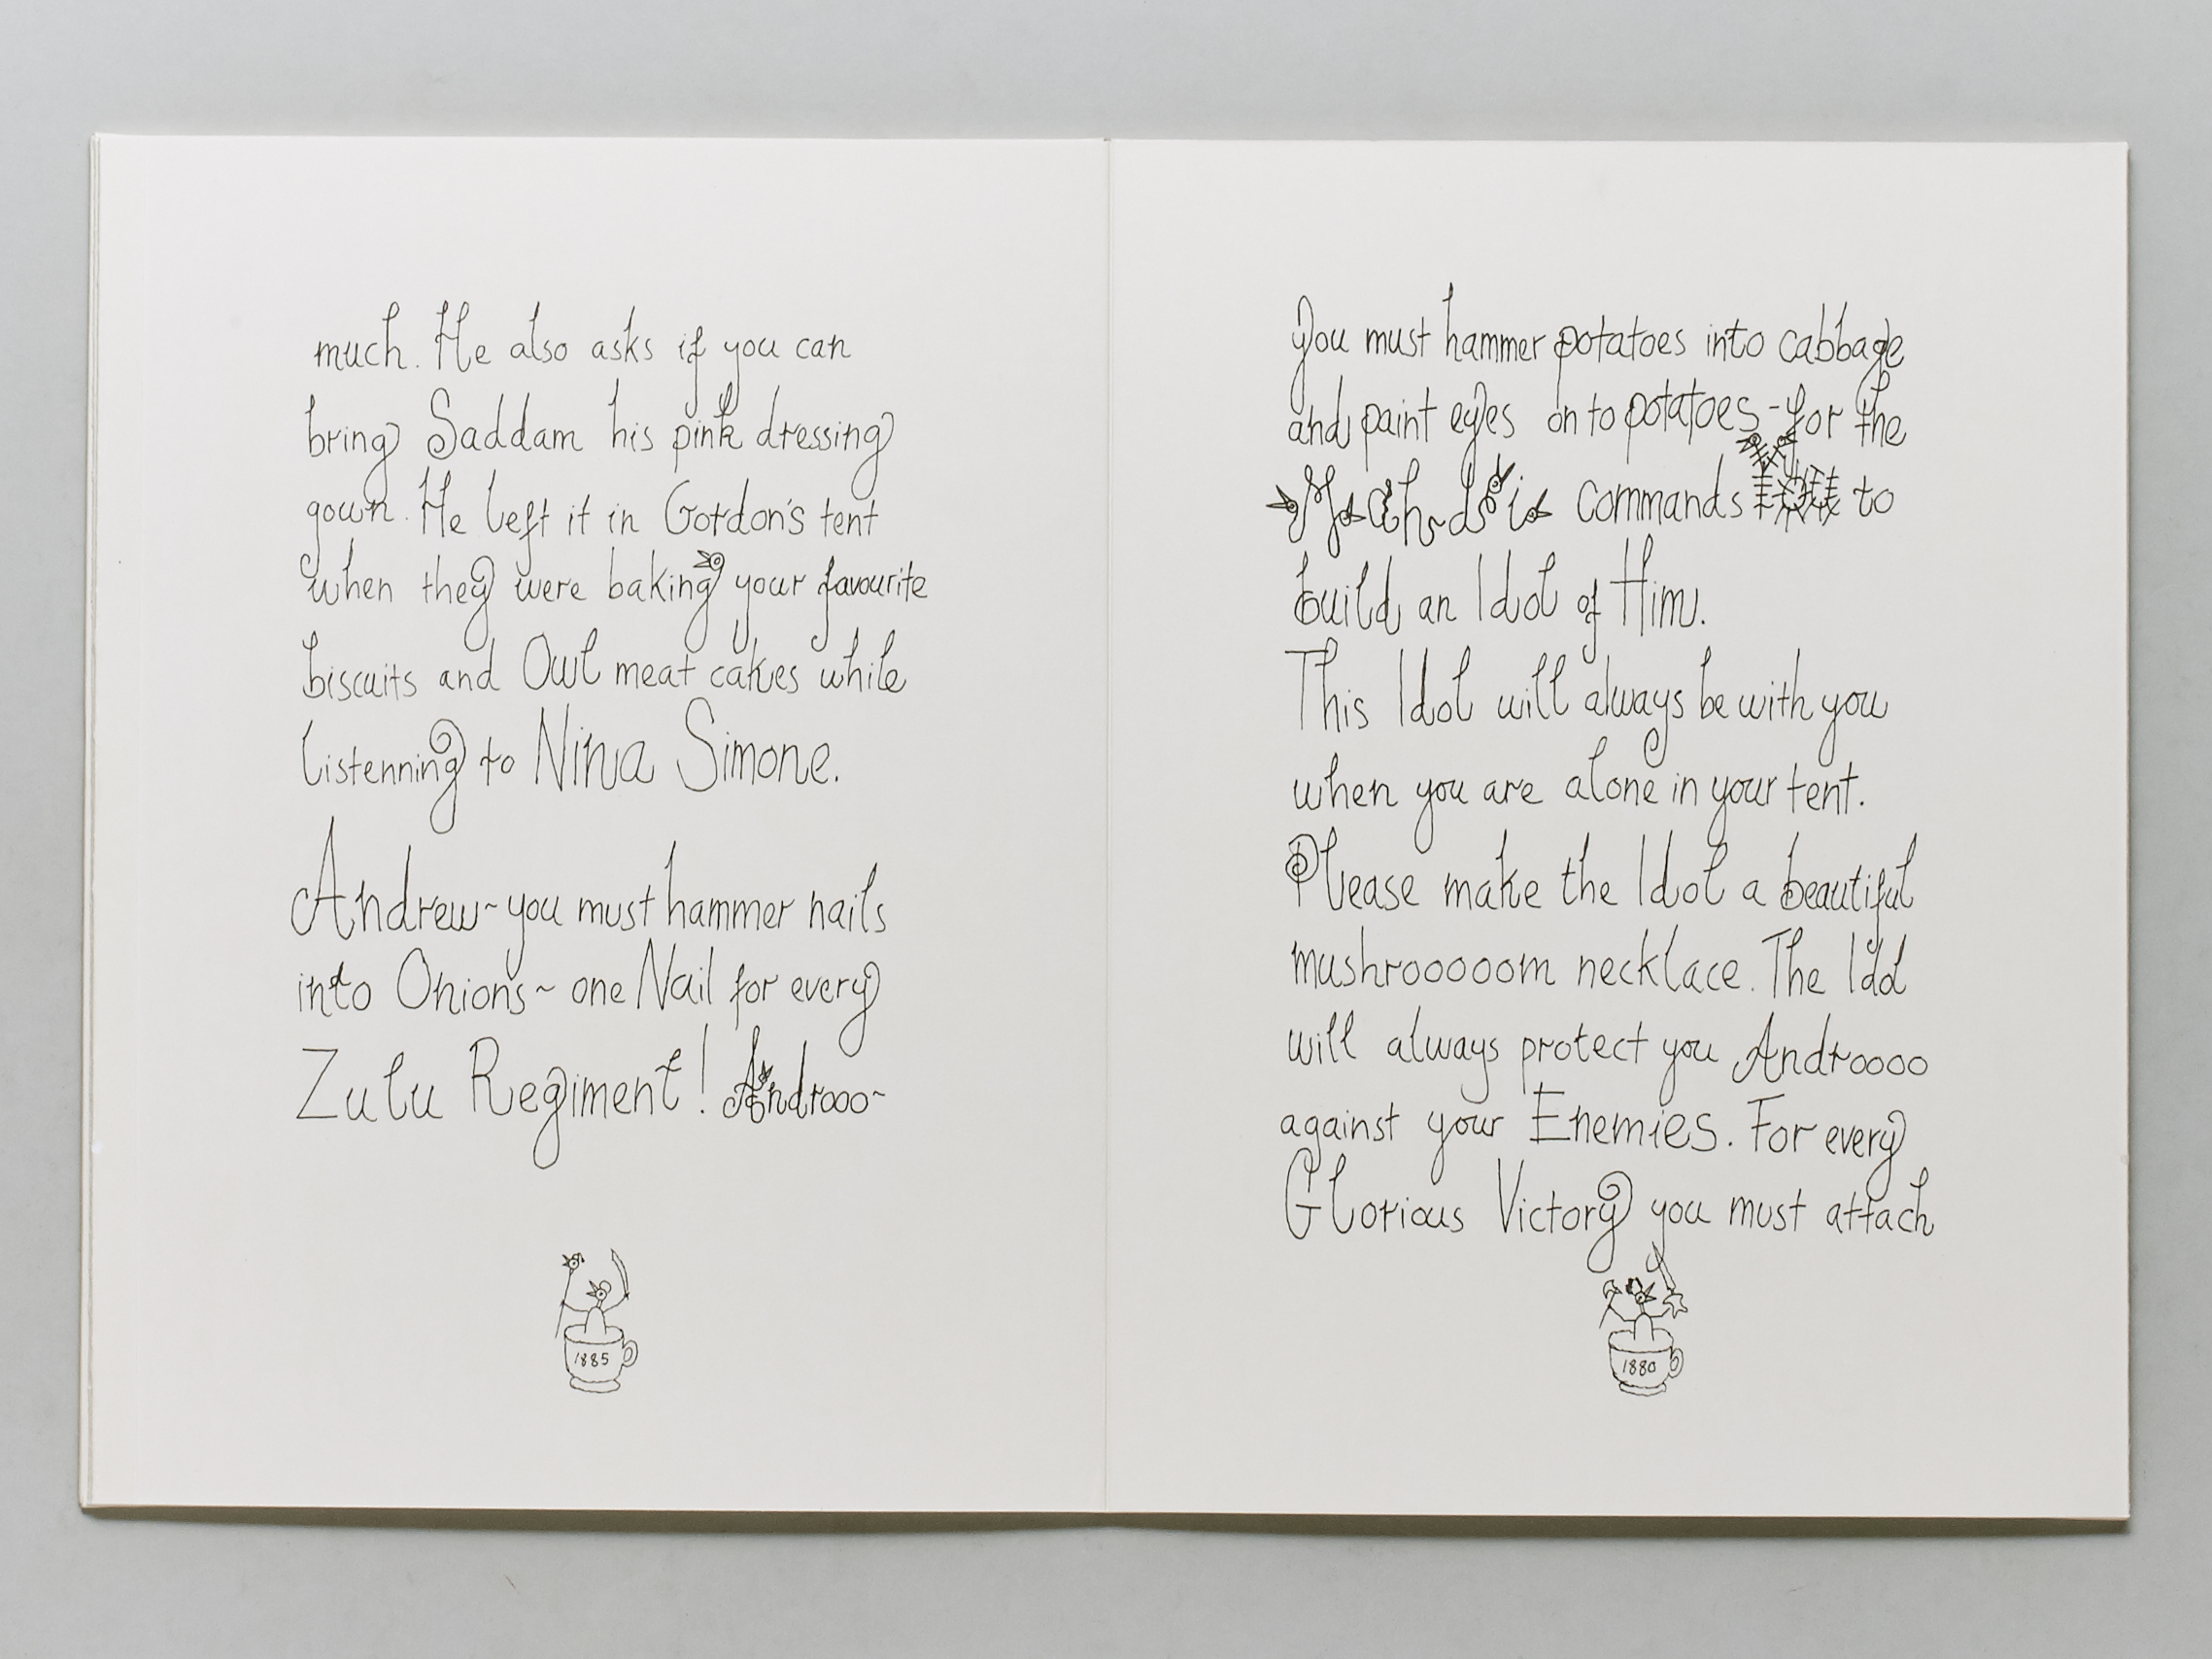 much. He also asks if you can
bring Saddam his pink dressing
gown. He left it in Gordon's tent
when they were baking your favourite
biscuits and Owl meat cakes while
listenning to Nina Simone.
Andrew~you must hammer nails
into Onions~ one Nail for every
Zulu Regiment! Androoo~
1885
you must hammer potatoes into cabbage
and paint eyes on to potatoes-for the
commands to
build an Idol of Him.
This Idol will always be with you
when you are alone in your tent.
Please make the Idol a beautiful
mushrooooom necklace. The Idol
will always protect you Androooo
against your Enemies. For every
Glorious Victory you must attach
1880